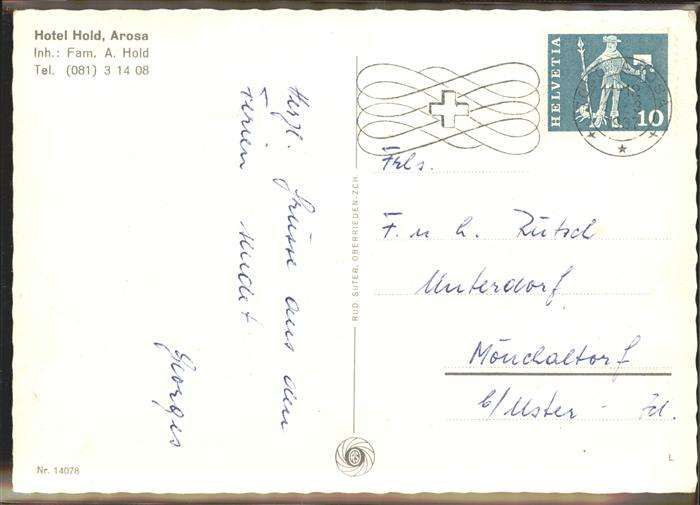 Hotel Hold, Arosa
Inh.: Fam. A. Hold
Tel. (081) 3 14 08
Herzl. Grüsse aus den
Ferien sendet
Georges
RUD. SUTER, OBERRIEDEN-ZCH.
HELVETIA
10
Frls.
F. u h. Rütsch
Unterdorf
Mönchaltorf
b/Uster - Zd.
Nr. 14078
L